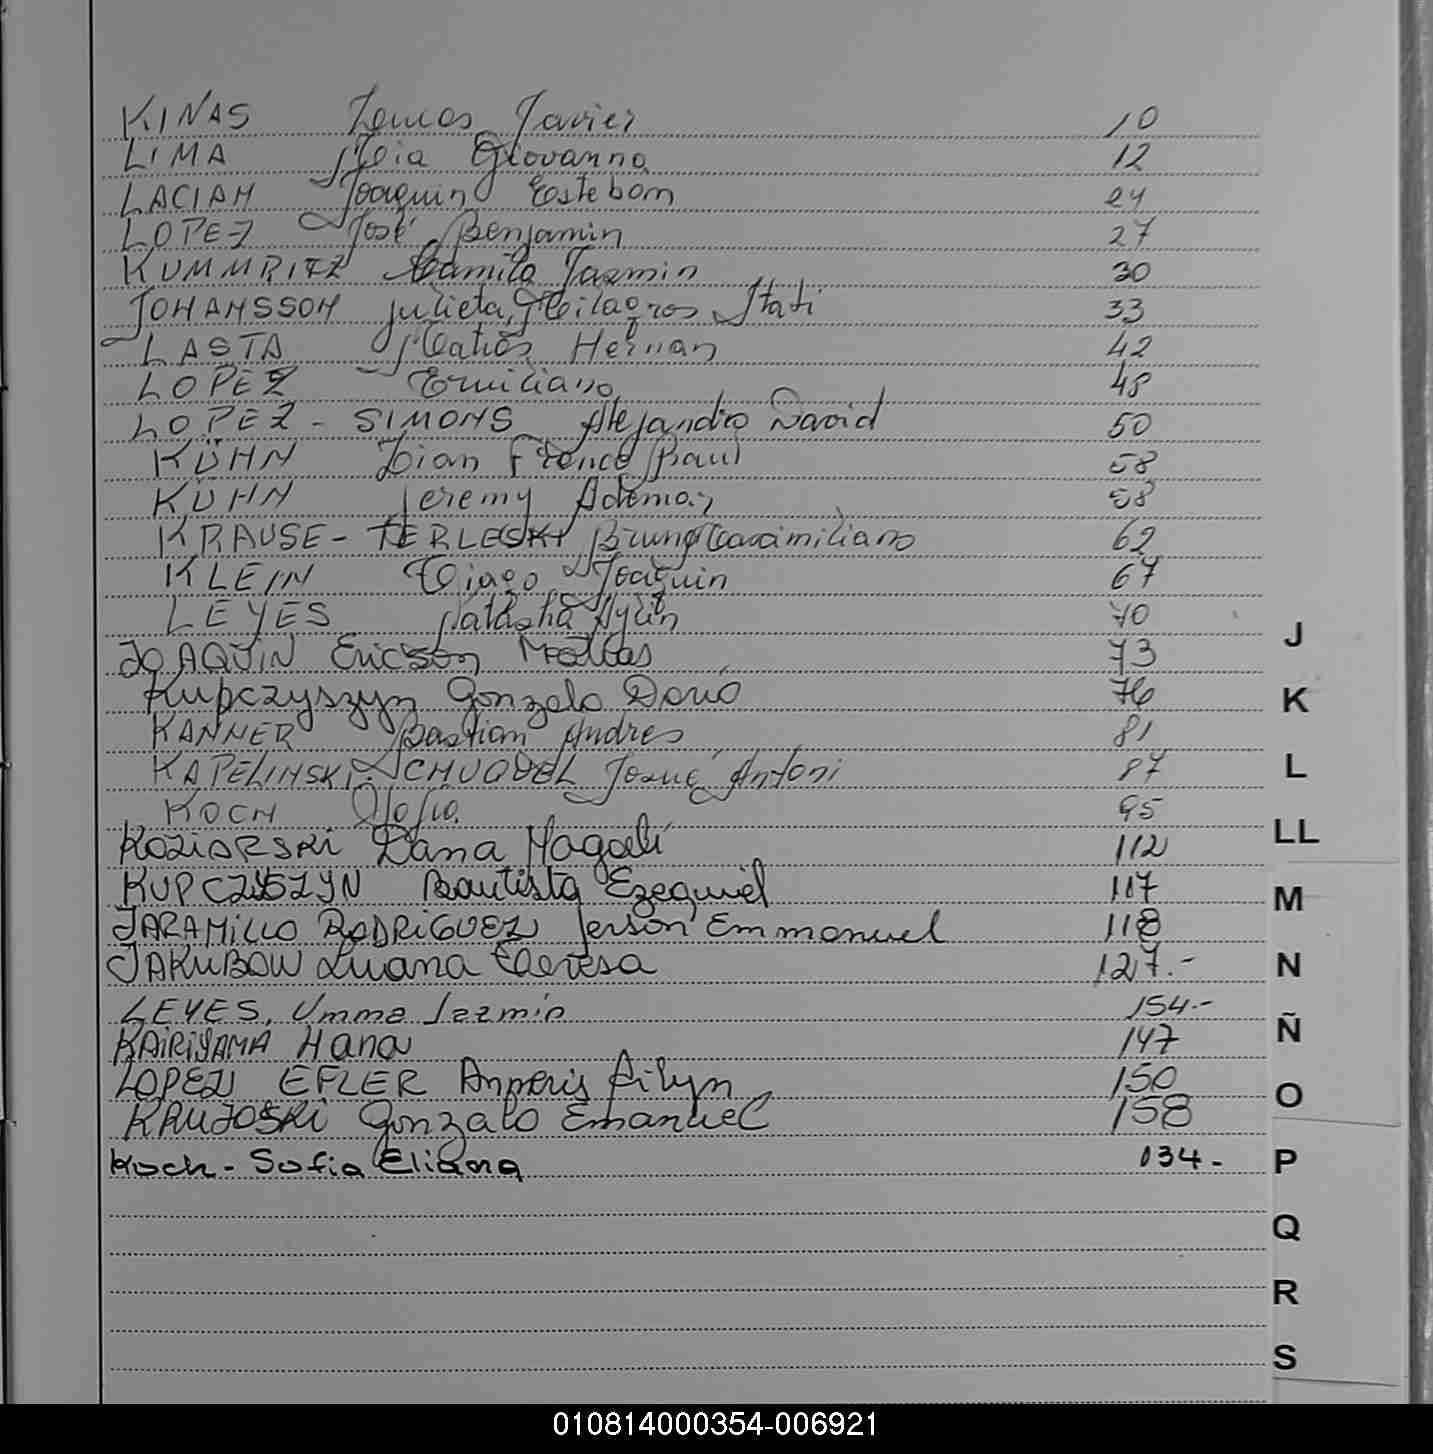 KINAS Lucas Javier 10
LIMA Mia Giovanna 12
LACIAH Joaquin Esteban 24
LOPEZ José Benjamin 27
KUMMRITZ Camila Jazmin 30
JOHANSSON Julieta Milagros Itati 33
LASTA Matias Hernan 42
LOPEZ Emiliano 48
LOPEZ - SIMONS Alejandro David 50
KÜHN Gian Franco Raul 58
KÜHN Jeremy Ademar 58
KRAUSE - TERLESKI Bruno Maximiliano 62
KLEIN Tiago Joaquin 67
LEYES Natasha Aylin 70
JOAQUIN Ericson Matias 73
Kupczyszyn Gonzalo Dario 76
KANNER Bastian Andres 81
KAPELINSKI SCHUQUEL Josué Antoni 87
KOCH Sofia 95
KOZIARSKI Dana Magali 112
KUPCZYSZYN Bautista Ezequiel 117
JARAMILLO RODRIGUEZ Jerson Emmanuel 118
JAKUBOW Luana Teresa 127.-
LEYES, Umma Jazmín 154.-
KAIRIYAMA Hana 147
LOPEZ EFLER Ailyn 150
KRUJOSKI Gonzalo Emanuel 158
Koch - Sofia Eliana 134-
J
K
L
LL
M
N
Ñ
O
P
Q
R
S
010814000354-006921